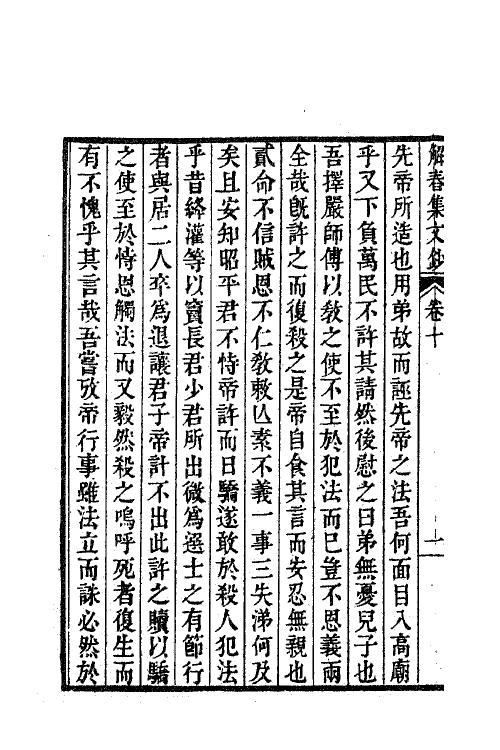 解舂集文鈔 卷十 十一
先帝所造也用弟故而誣先帝之法吾何面目入高廟
乎又下負萬民不許其請然後慰之曰弟無憂兒子也
吾擇嚴師傅以敎之使不至於犯法而已豈不恩義兩
全哉旣許之而復殺之是帝自食其言而安忍無親也
貳命不信賊恩不仁敎敕亾素不義一事三失涕何及
矣且安知昭平君不恃帝許而日驕遂敢於殺人犯法
乎昔絳灌等以竇長君少君所出微爲選士之有節行
者與居二人卒爲退讓君子帝計不出此許之贖以驕
之使至於恃恩觸法而又毅然殺之嗚呼死者復生而
有不愧乎其言哉吾嘗攷帝行事雖法立而誅必然於